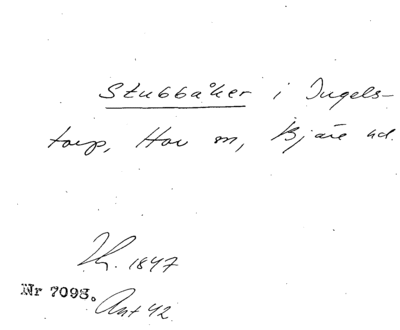 Stubbåker i Ingels-
torp, Hov sn, Bjäre hd.
Th. 1847
Nr 7093.
Ant 42